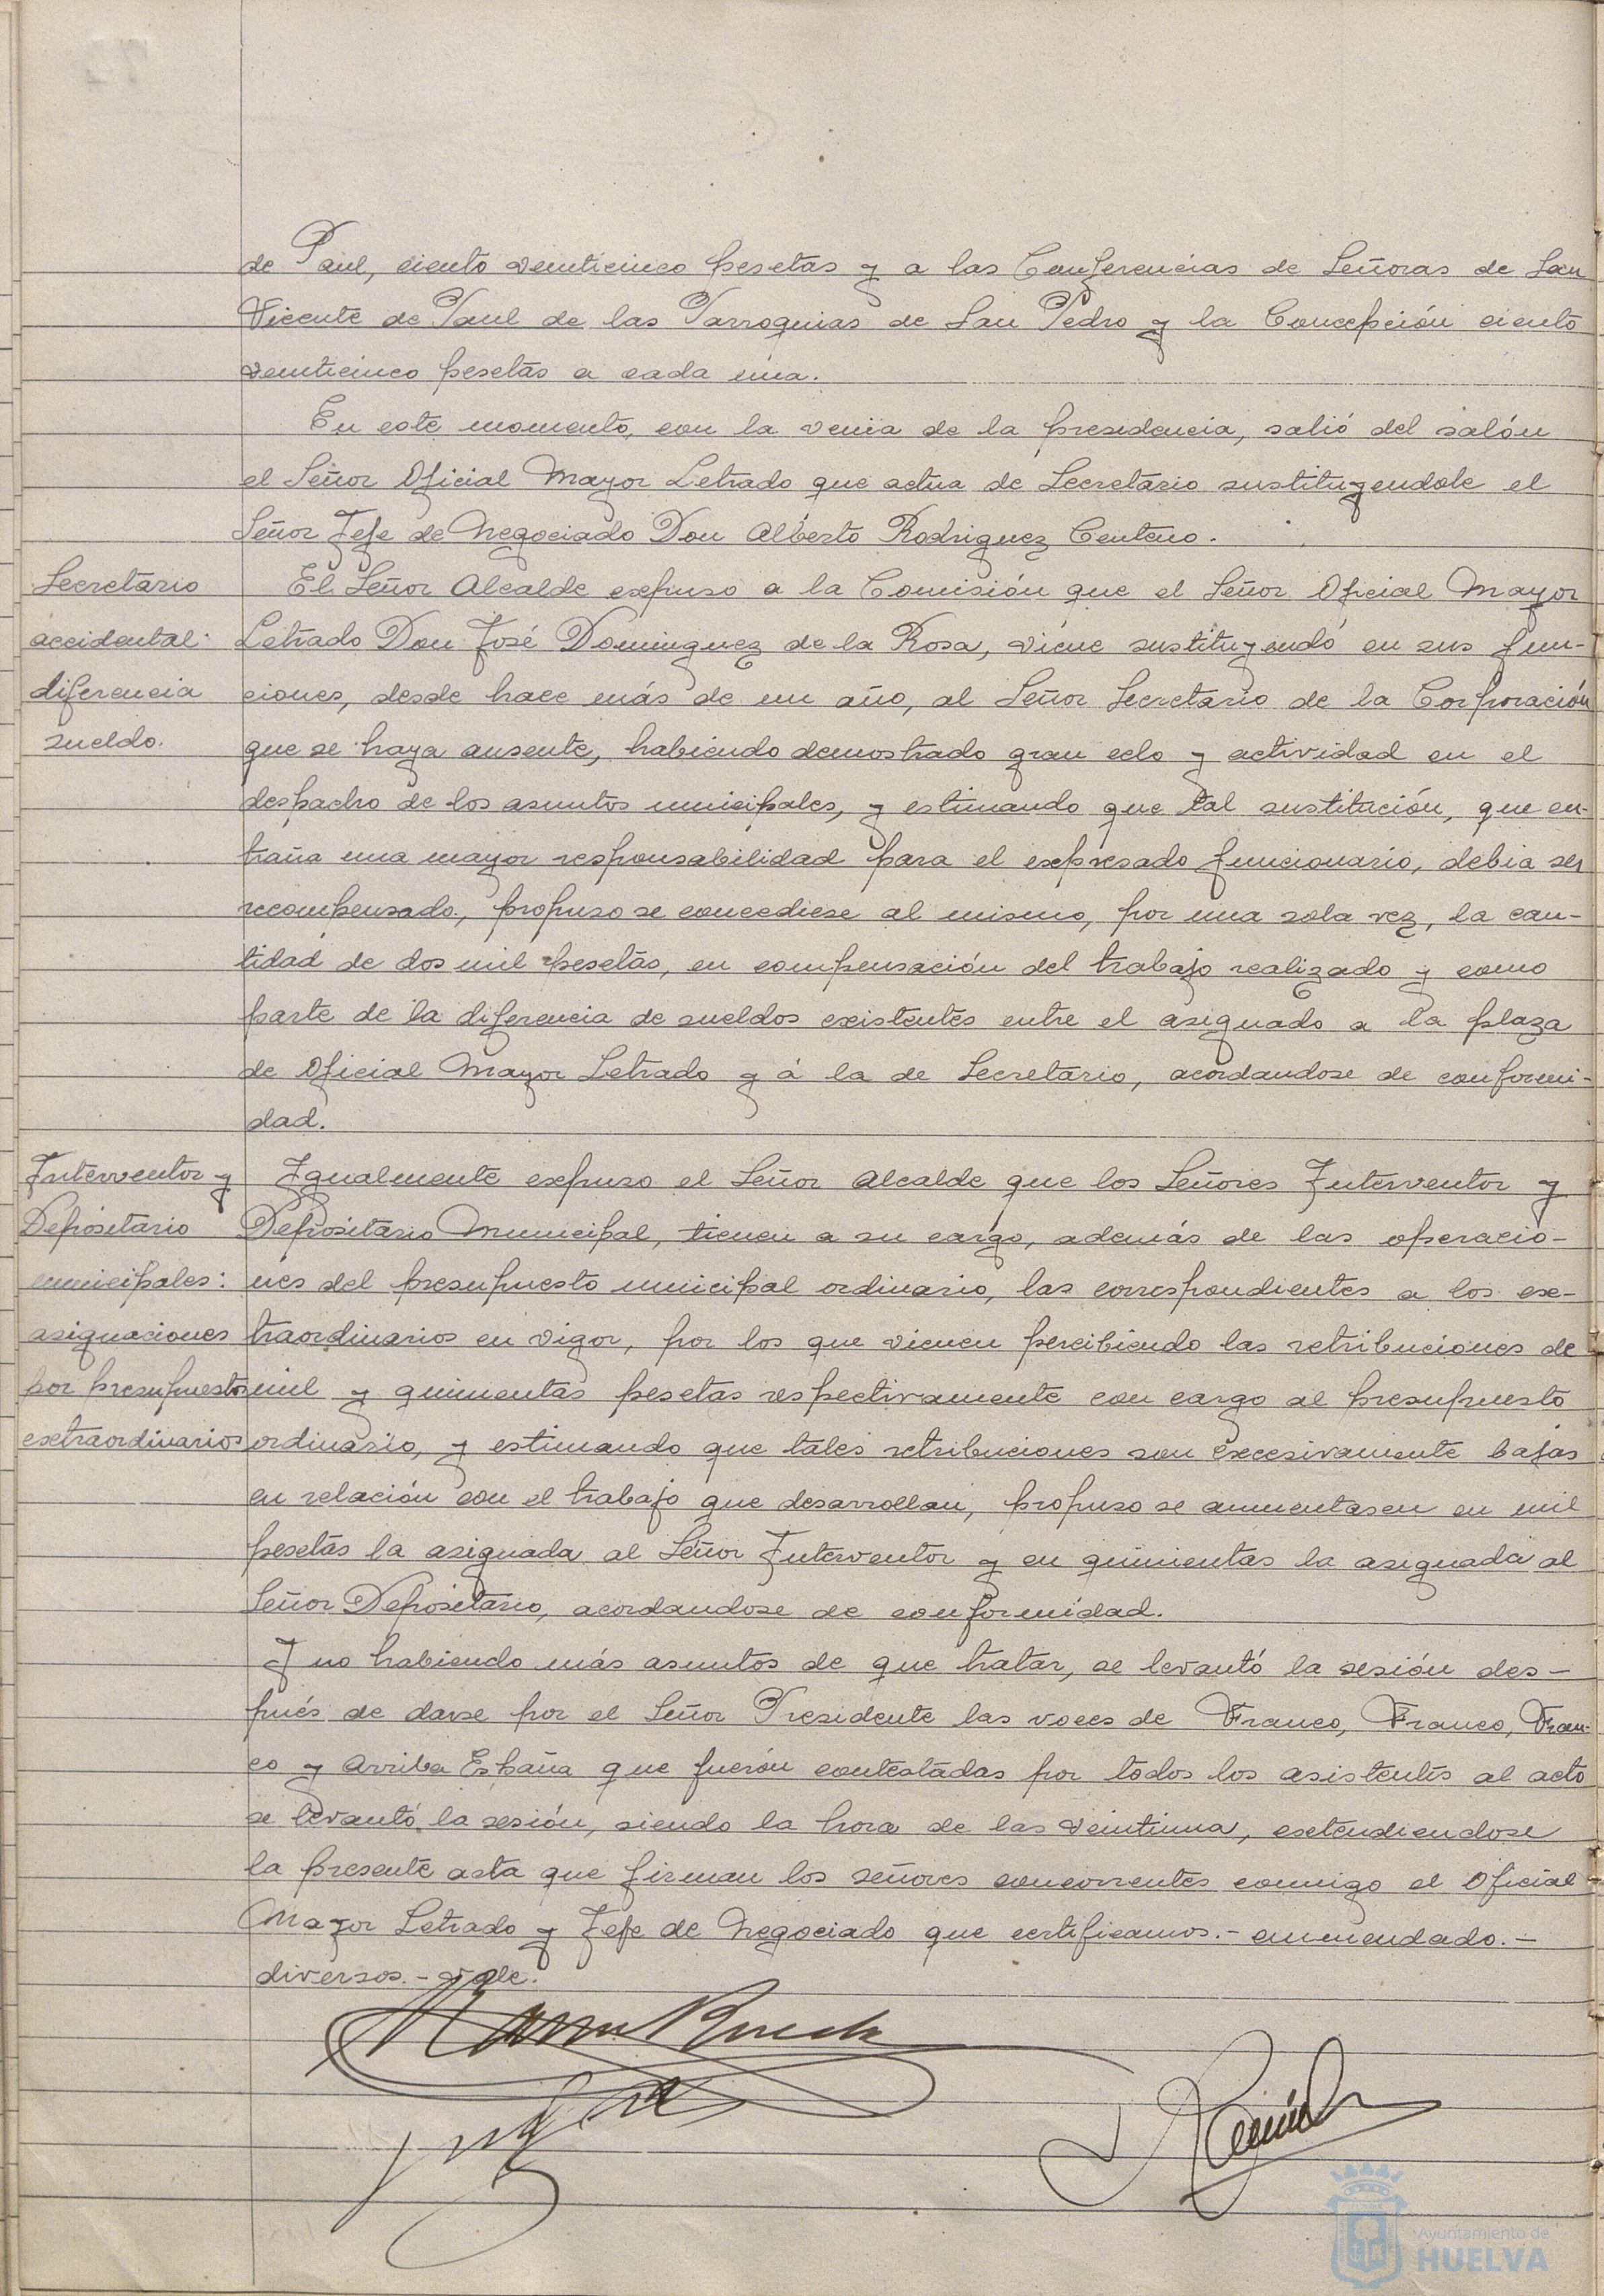 de Paul, ciento veinticinco pesetas y a las Conferencias de Señoras de San
Vicente de Paul de las Parroquias de San Pedro y la Concepción ciento
veinticinco pesetas a cada una.
En este momento, con la venia de la presidencia, salió del salón
el Señor Oficial Mayor Letrado que actua de Secretario sustituyendole el
Señor Jefe de Negociado Don Alberto Rodriguez Centeno.
Secretario
accidental:
diferencia
sueldo.
El Señor Alcalde expuso a la Comisión que el Señor Oficial Mayor
Letrado Don José Dominguez de la Rosa, viene sustituyendo en sus fun-
ciones, desde hace más de un año, al Señor Secretario de la Corporación
que se haya ausente, habiendo demostrado gran celo y actividad en el
despacho de los asuntos municipales, y estimando que tal sustitución, que en-
traña una mayor responsabilidad para el expresado funcionario, debia ser
recompensado, propuso se concediese al mismo, por una sola vez, la can-
tidad de dos mil pesetas, en compensación del trabajo realizado y como
parte de la diferencia de sueldos existentes entre el asignado a la plaza
de Oficial Mayor Letrado y á la de Secretario, acordandose de conformi-
dad.
Interventor y
Depositario
municipales:
asignaciones
por presupuestos
extraordinarios
Igualmente expuso el Señor Alcalde que los Señores Interventor y
Depositario Municipal, tienen a su cargo, además de las operacio-
nes del presupuesto municipal ordinario, las correspondientes a los ex-
traordinarios en vigor, por los que vienen percibiendo las retribuciones de
mil y quinientas pesetas respectivamente con cargo al presupuesto
ordinario, y estimando que tales retribuciones son excesivamente bajas
en relación con el trabajo que desarrollan, propuso se aumentasen en mil
pesetas la asignada al Señor Interventor y en quinientas la asignada al
Señor Depositario, acordandose de conformidad.
Y no habiendo más asuntos de que tratar, se levantó la sesión des-
pués de darse por el Señor Presidente las voces de Franco, Franco, Fran-
co y Arriba España que fuerón contestadas por todos los asistentes al acto
se levantó la sesión, siendo la hora de las veintiuna, extendiendose
la presente acta que firman los señores concurrentes conmigo el Oficial
Mayor Letrado y Jefe de Negociado que certificamos.- enmendado.-
diversos.- vale.
Ayuntamiento de
HUELVA